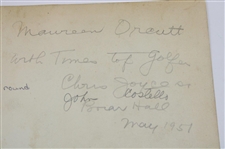 Maureen Orcutt
with Times top Golfer
Chris Joyce or
round John Costello
Briar Hall
May 1951